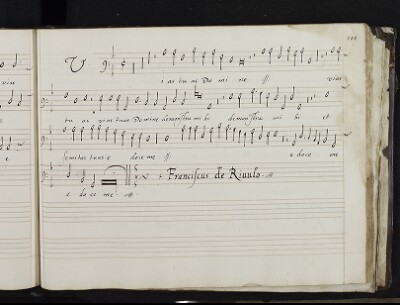 V
ias tuas Domine // vias
tuas vias tuas Domine demonstra mihi demonstra mihi et
semitas tuas e doce me // e doce me
e doce me //
Franciscus de Riuulo